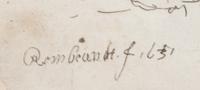 Rembrandt. f. 1651